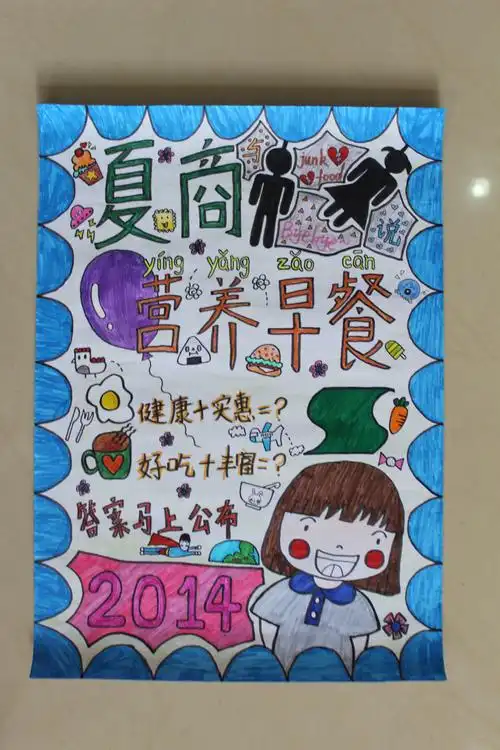 夏商
与
junk
food
Bye bye
说
yíng yǎng zǎo cān
营养早餐
健康+实惠=?
好吃+丰富=?
答案马上公布
2014